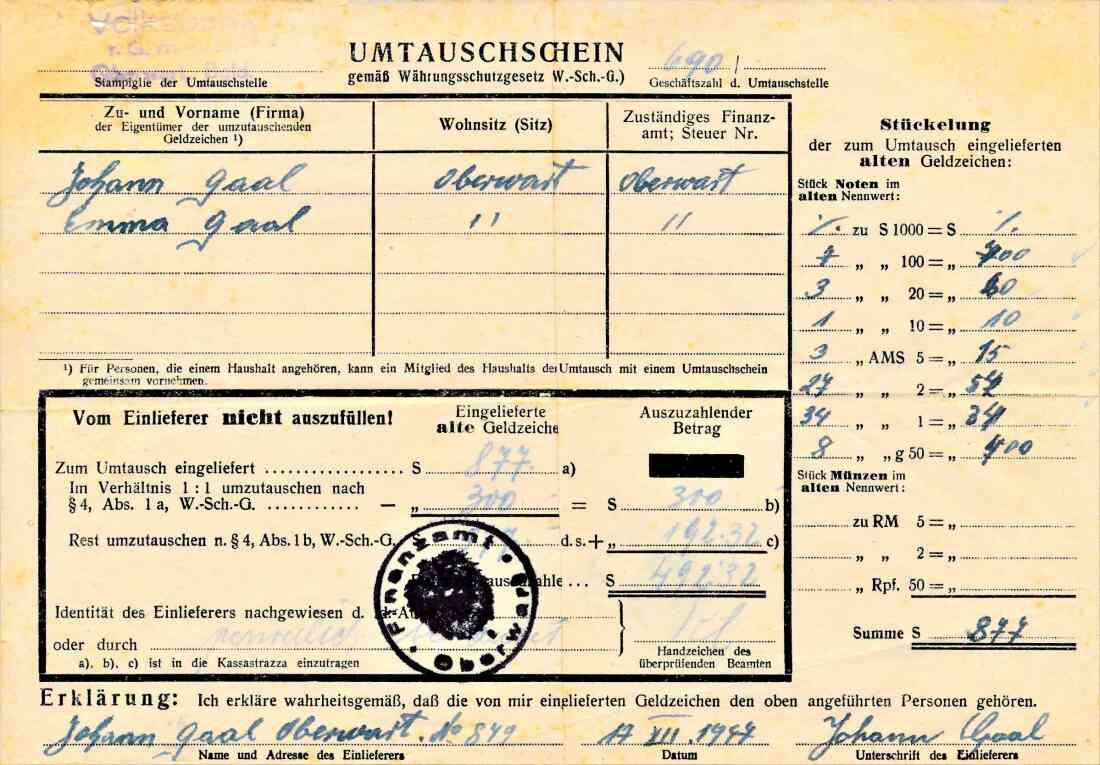 VOLKSBANK
r. G. m.
Oberwart, Bgld.
UMTAUSCHSCHEIN
gemäß Währungsschutzgesetz W.-Sch.-G.)
690/
Stampiglie der Umtauschstelle
Geschäftszahl d. Umtauschstelle
Zu- und Vorname (Firma)
der Eigentümer der umzutauschenden
Geldzeichen ¹)
Wohnsitz (Sitz)
Zuständiges Finanz-
amt; Steuer Nr.
Johann Gaal Oberwart Oberwart
Emma Gaal " "
¹) Für Personen, die einem Haushalt angehören, kann ein Mitglied des Haushalts den Umtausch mit einem Umtauschschein
gemeinsam vornehmen.
Stückelung
der zum Umtausch eingelieferten
alten Geldzeichen:
Stück Noten im
alten Nennwert:
%. zu S 1000 = S %.
7 „ „ 100 = „ 700
3 „ „ 20 = „ 60
1 „ „ 10 = „ 10
3 „ AMS 5 = „ 15
27 „ „ 2 = „ 54
34 „ „ 1 = „ 34
8 „ „ g 50 = „ 400
Stück Münzen im
alten Nennwert:
zu RM 5 = „
„ „ 2 = „
„ Rpf. 50 = „
Summe S 877
Vom Einlieferer nicht auszufüllen!
Eingelieferte
alte Geldzeichen
Auszuzahlender
Betrag
Zum Umtausch eingeliefert S 877.- a)
Im Verhältnis 1 : 1 umzutauschen nach
§ 4, Abs. 1 a, W.-Sch.-G. — „ 300 = S 300 b)
Rest umzutauschen n. § 4, Abs. 1 b, W.-Sch.-G. d. s. + „ 192.32 c)
S 492.32
Identität des Einlieferers nachgewiesen d.
oder durch
a). b). c) ist in die Kassastrazza einzutragen
Handzeichen des
überprüfenden Beamten
Finanzamt Oberwart
Erklärung: Ich erkläre wahrheitsgemäß, daß die von mir einlieferten Geldzeichen den oben angeführten Personen gehören.
Johann Gaal Oberwart. No 849 17 XII. 1947 Johann Gaal
Name und Adresse des Einlieferers Datum Unterschrift des Einlieferers